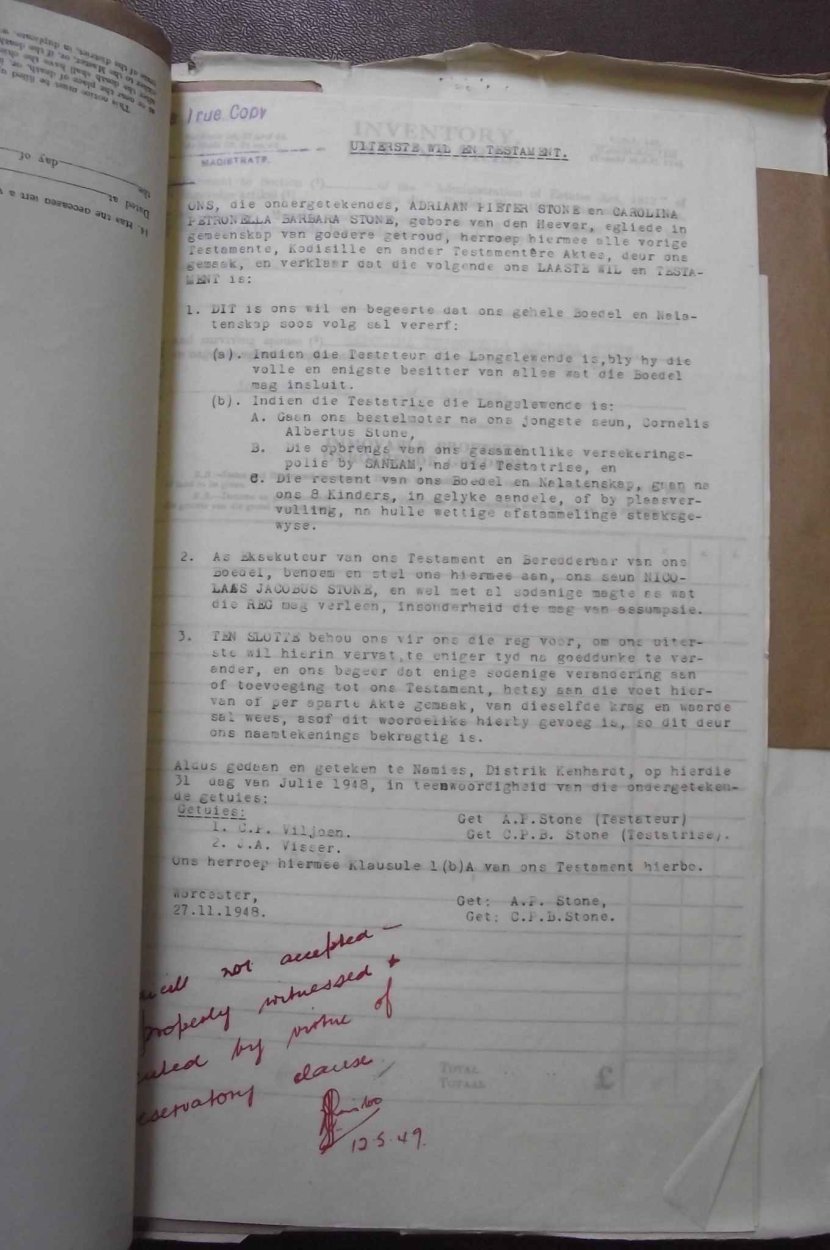 True Copy
MAGISTRATE.
INVENTORY
UITERSTE WIL EN TESTAMENT.
ONS, die ondergetekendes, ADRIAAN PIETER STONE en CAROLINA
PETRONELLA BARBARA STONE, gebore van den Heever, egliede in
gemeenskap van goedere getroud, herroep hiermee alle vorige
Testamente, Kodisille en ander Testamentêre Aktes, deur ons
gemaak, en verklaar dat die volgende ons LAASTE WIL en TESTA-
MENT is:
1. DIT is ons wil en begeerte dat ons gehele Boedel en Nala-
tenskap soos volg sal vererf:
(a). Indien die Testateur die Langslewende is, bly hy die
volle en enigste besitter van alles wat die Boedel
mag insluit.
(b). Indien die Testatrise die Langslewende is:
A. Gaan ons bestelmoter na ons jongste seun, Cornelis
Albertus Stone,
B. Die opbrengs van ons gesamentlike versekerings-
polis by SANLAM, na die Testatrise, en
C. Die restant van ons Boedel en Nalatenskap, gaan na
ons 8 Kinders, in gelyke aandele, of by plaasver-
vulling, na hulle wettige afstammelinge staaksge-
wyse.
2. As Eksekuteur van ons Testament en Beredderaar van ons
Boedel, benoem en stel ons hiermee aan, ons seun NICO-
LAAS JACOBUS STONE, en wel met al sodanige magte as wat
die REG mag verleen, insonderheid die mag van assumpsie.
3. TEN SLOTTE behou ons vir ons die reg voor, om ons uiter-
ste wil hierin vervat, te eniger tyd na goeddunke te ver-
ander, en ons begeer dat enige sodanige verandering aan
of toevoeging tot ons Testament, hetsy aan die voet hier-
van of per aparte Akte gemaak, van dieselfde krag en waarde
sal wees, asof dit woordeliks hierby gevoeg is, so dit deur
ons naamtekenings bekragtig is.
Aldus gedaan en geteken te Namies, Distrik Kenhardt, op hierdie
31 dag van Julie 1948, in teenwoordigheid van die ondergeteken-
de getuies:
Getuies:
1. C.P. Viljoen.
2. J.A. Visser.
Get A.P.Stone (Testateur)
Get C.P.B. Stone (Testatrise).
Ons herroep hiermee Klausule 1(b)A van ons Testament hierbo.
Worcester,
27.11.1948.
Get: A.P. Stone,
Get: C.P.B.Stone.
will not accepted -
properly witnessed +
by virtue of
reservatory clause
12.5.49.
TOTAL
TOTAAL
£